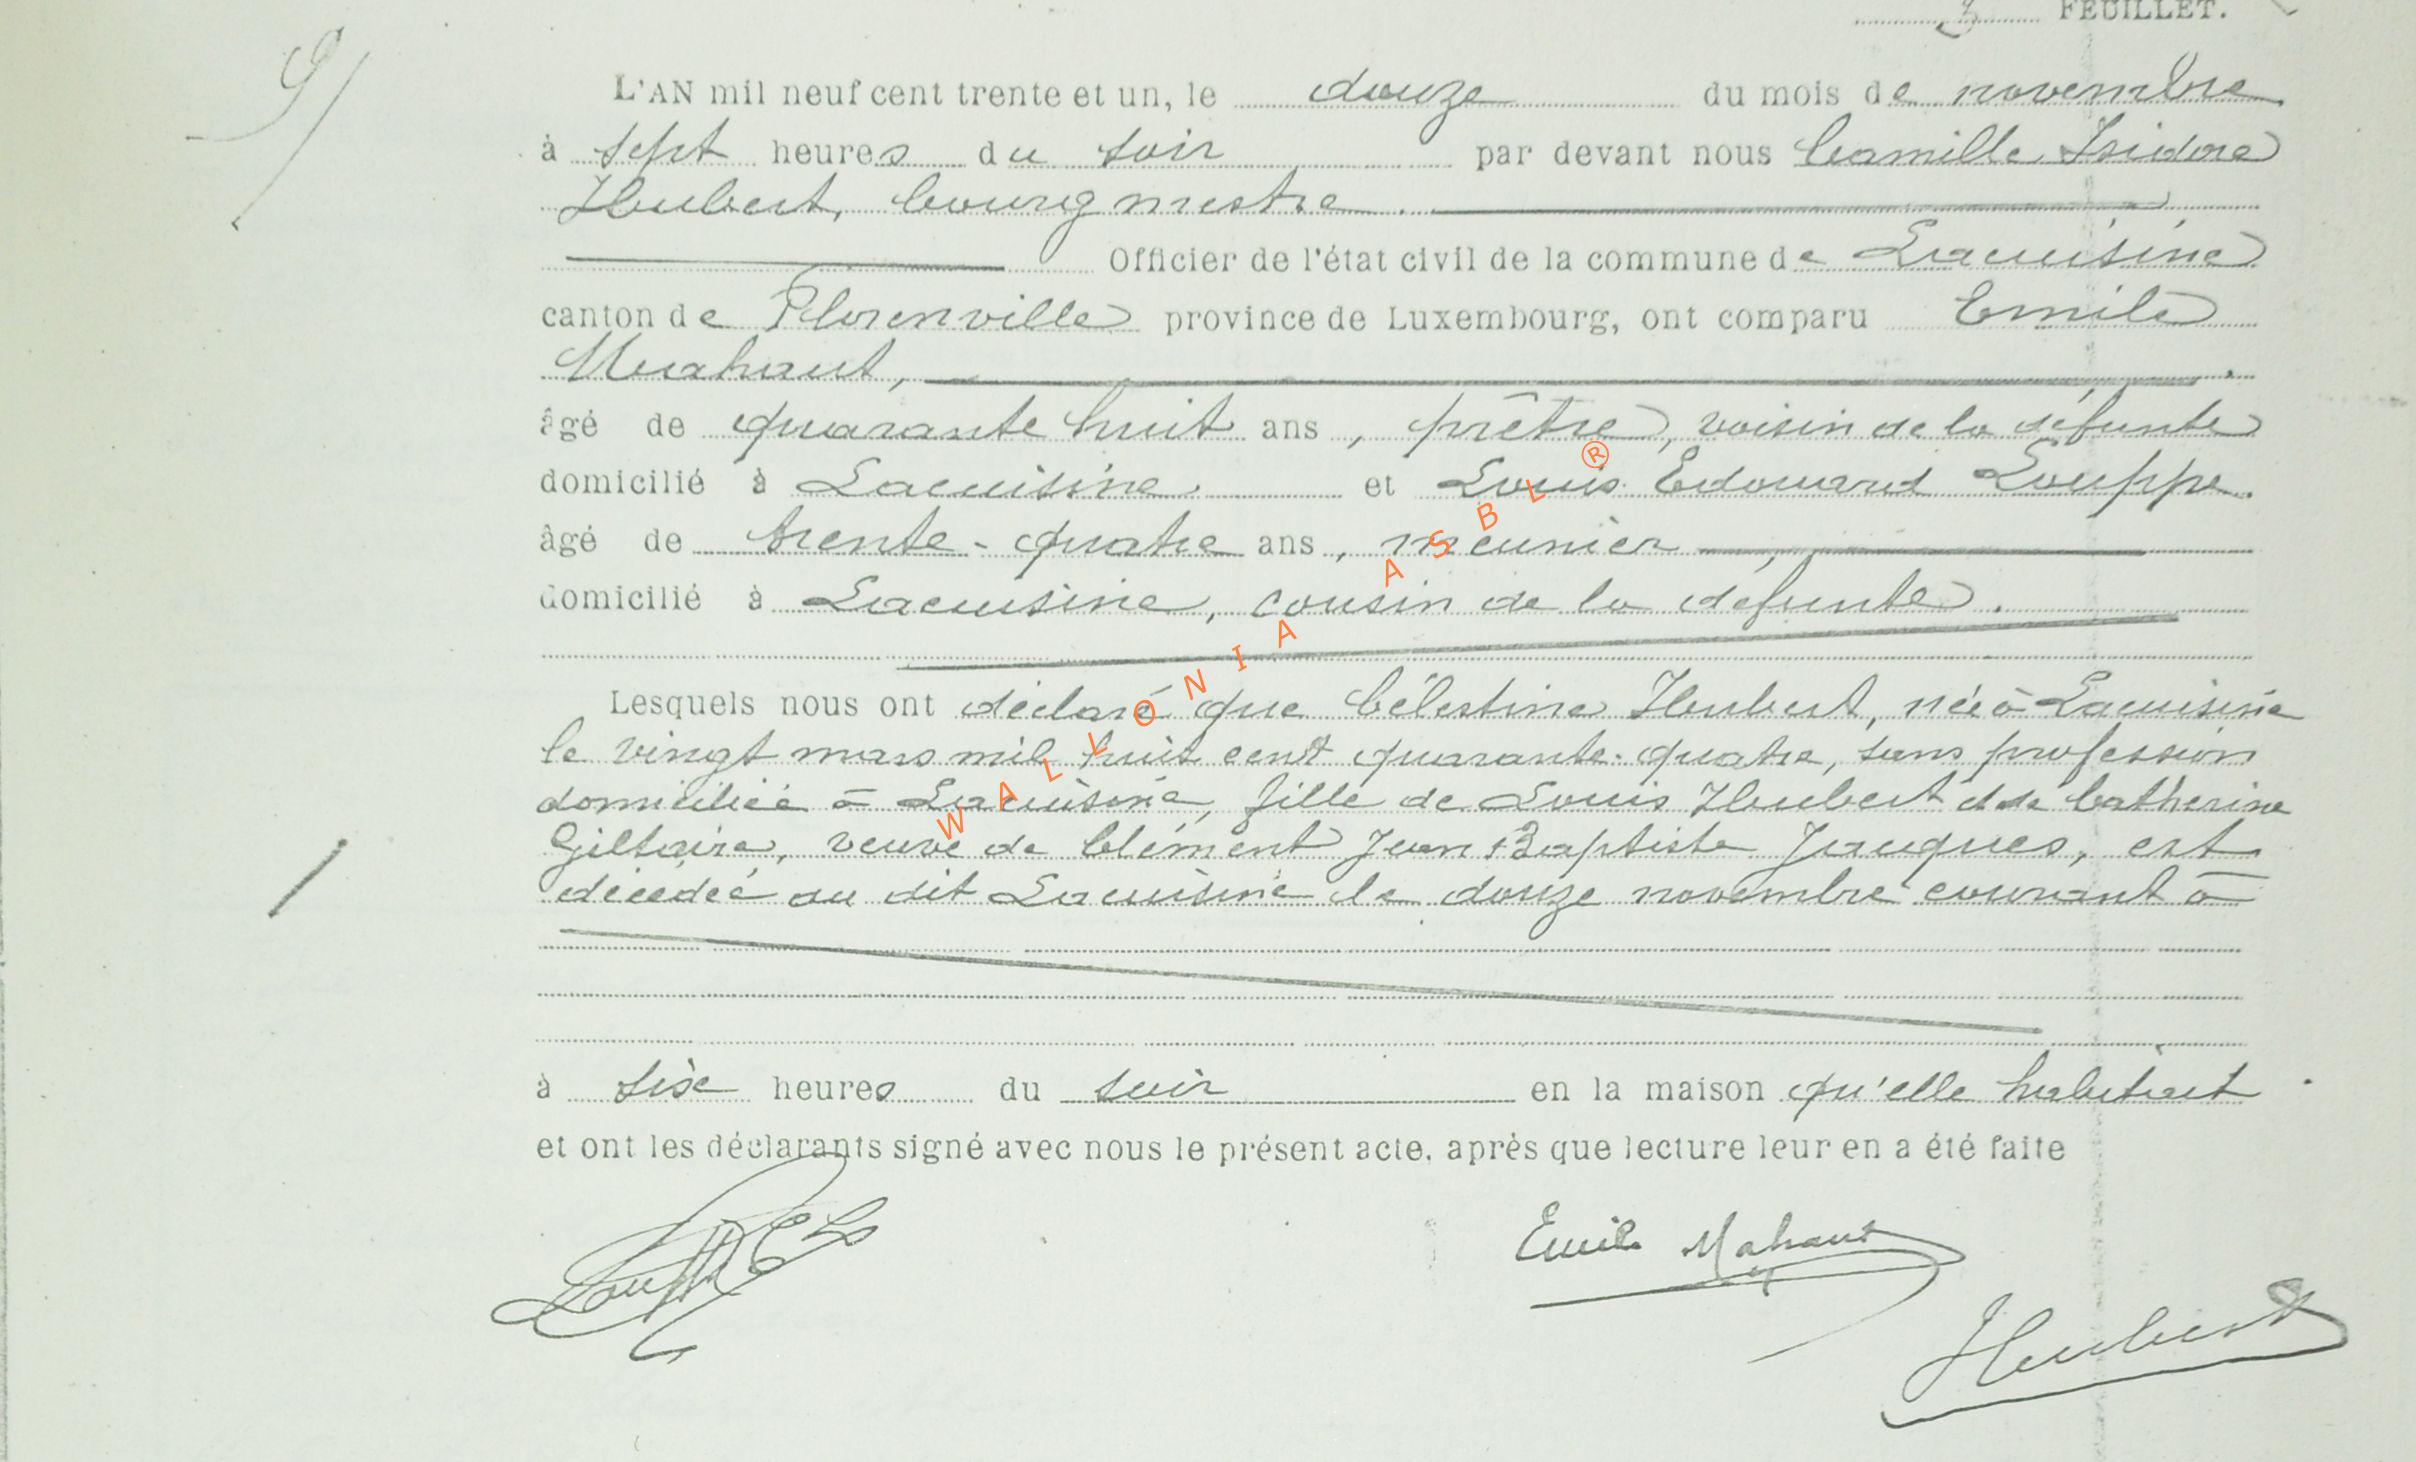 3 FEUILLET.
9/
L'AN mil neuf cent trente et un, le douze du mois de novembre
à sept heures du soir par devant nous Camille Isidore
Hubert, bourgmestre
Officier de l'état civil de la commune de Lacuisine
canton de Florenville province de Luxembourg, ont comparu Emile
Mahaut,
âgé de quarante huit ans, prêtre, voisin de la défunte
domicilié à Lacuisine et Louis Edouard Louppe.
âgé de trente-quatre ans, meunier,
domicilié à Lacuisine, cousin de la défunte.
Lesquels nous ont déclaré que Célestine Hubert, née à Lacuisine
le vingt mars mil huit cent quarante-quatre, sans profession
domiciliée à Lacuisine, fille de Louis Hubert et de Catherine
Giltaire, veuve de Clément Jean-Baptiste Jacques, est
décédée au dit Lacuisine le douze novembre courant à
à six heures du soir en la maison qu'elle habitait
et ont les déclarants signé avec nous le présent acte, après que lecture leur en a été faite
Emile Mahaut
Hubert
WALLONIA ASBL ®